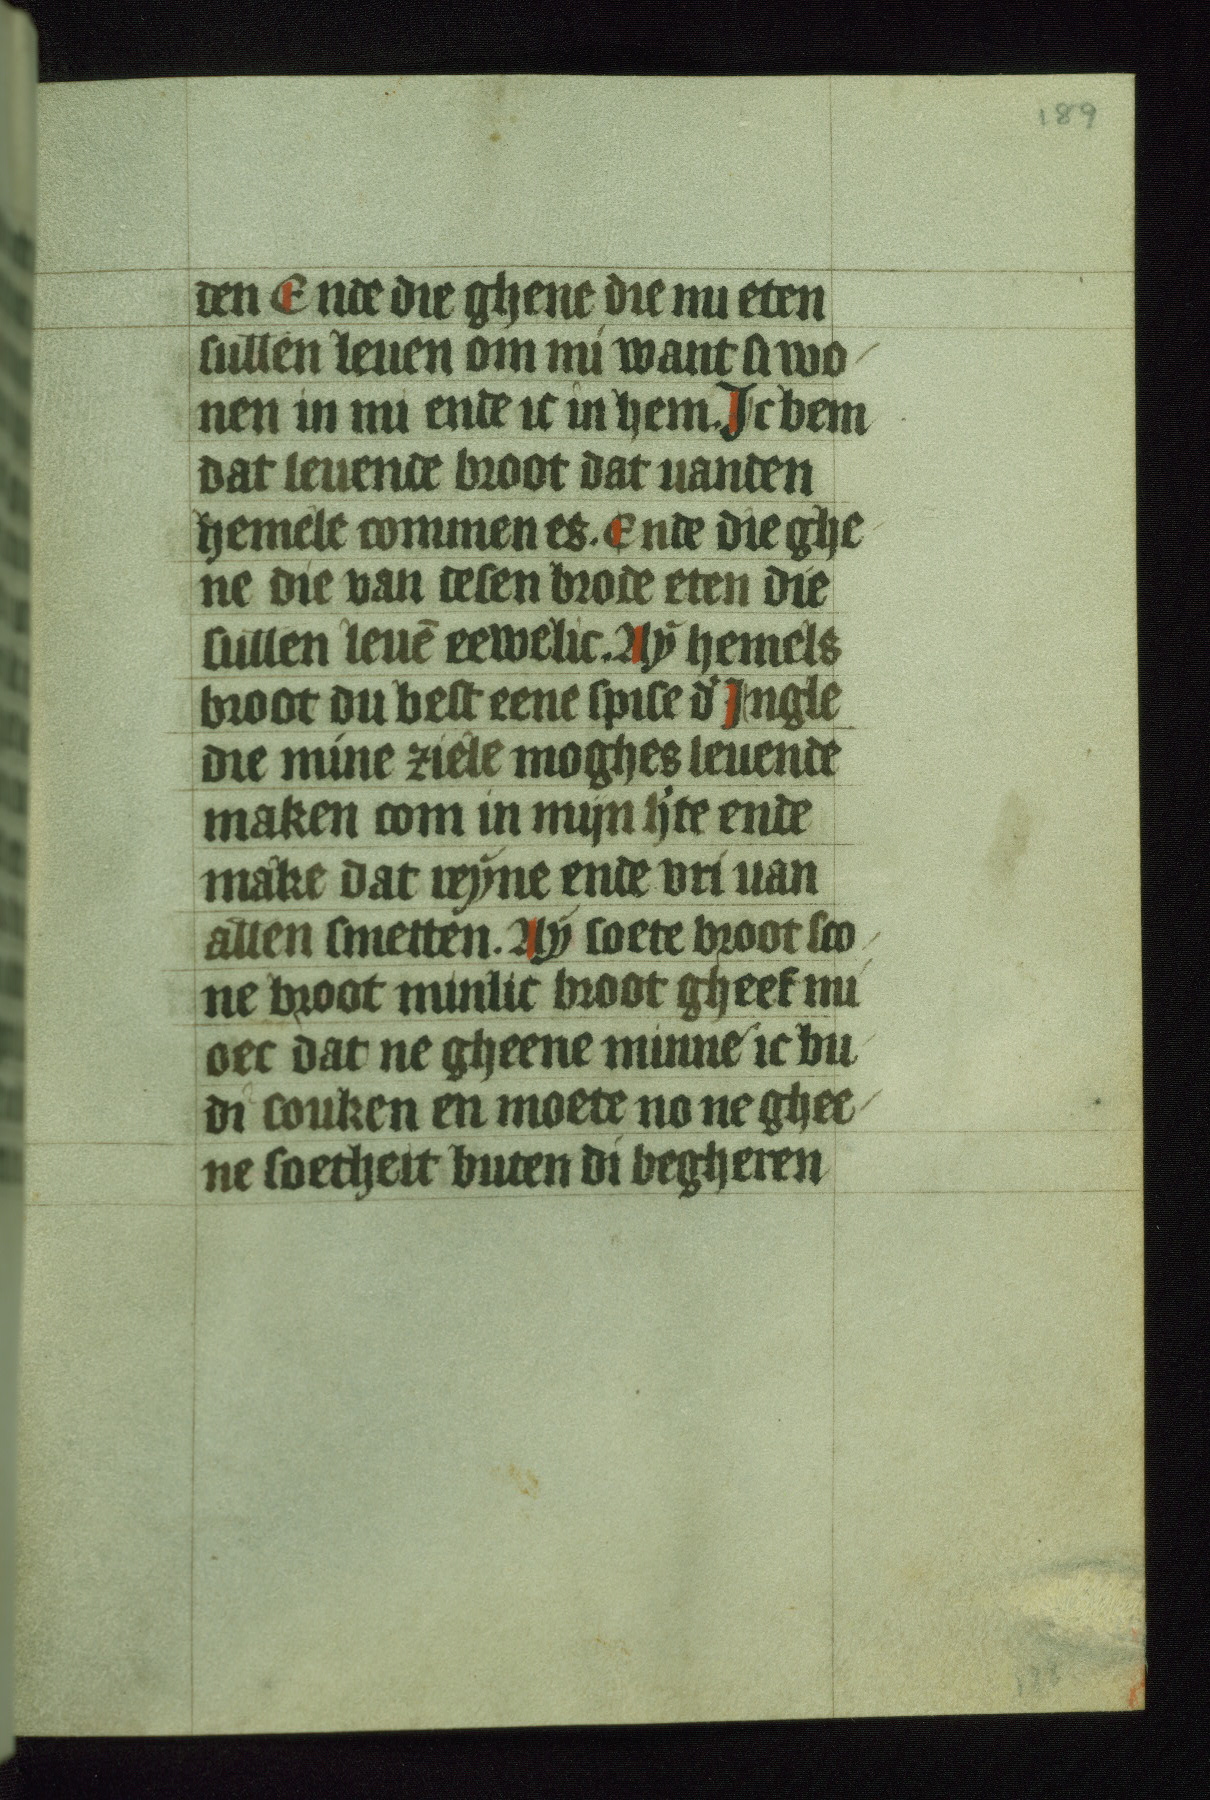 189
den Ende die ghene die mi eten
sullen leuen om mi want si wo-
nen in mi ende ic in hem. Jc bem
dat leuende broot dat uanden
hemele commen es. Ende die ghe
ne die van desen brode eten die
sullen leuē eewelic. Aÿ hemels
broot du best eene spise d' Jngle
die mine ziele moghes leuende
maken com in mijn h'te ende
make dat reÿne ende vri uan
allen smetten. Aÿ soete broot sco-
ne broot minlic broot gheef mi
oec dat ne gheene minne ic bu-
di souken en moete no ne ghee-
ne soetheit buten di begheren